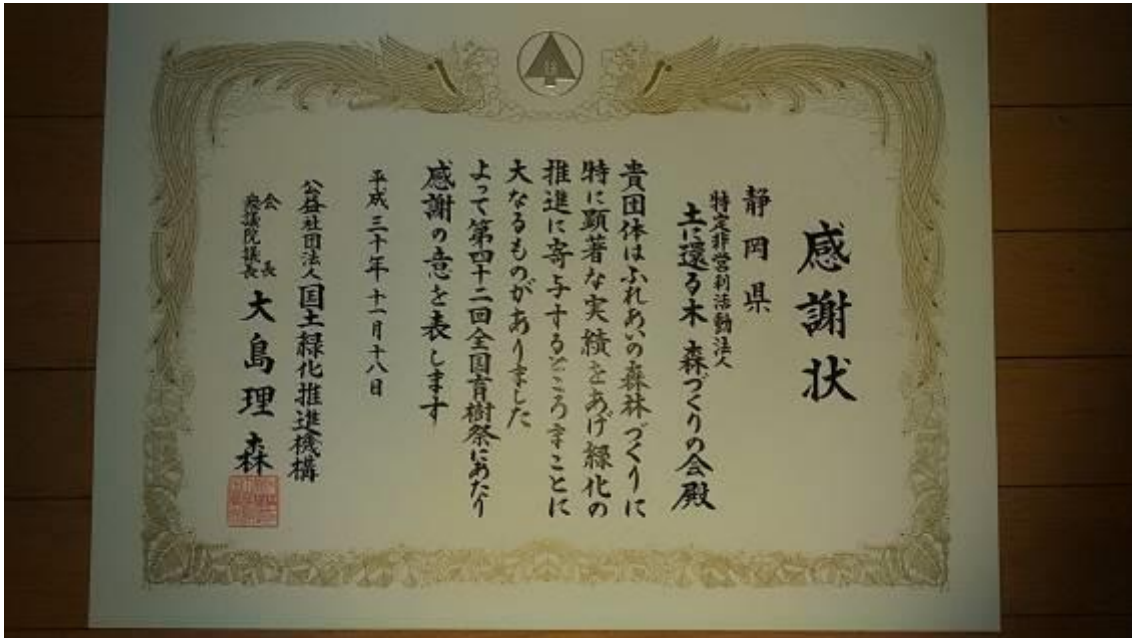 感謝状
静岡県
特定非営利活動法人
土に還る木 森づくりの会殿
貴団体はふれあいの森林づくりに
特に顕著な実績をあげ緑化の
推進に寄与するところまことに
大なるものがありました
よって第四十二回全国育樹祭にあたり
感謝の意を表します
平成三十年十一月十八日
公益社団法人国土緑化推進機構
会長
衆議院議長
大島理森